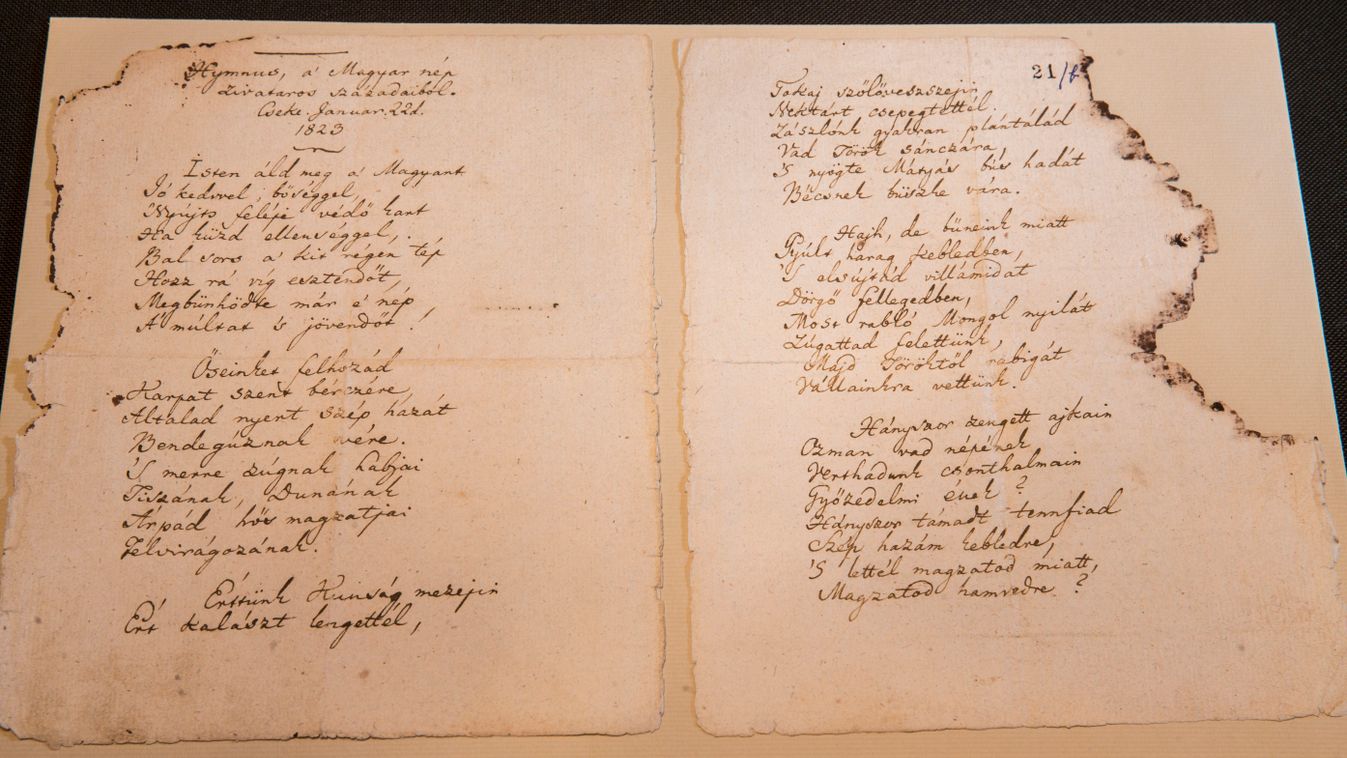 Hymnus, a' Magyar nép
zivataros századaiból.
Cseke. Januar. 22d.
1823
Isten áld meg a' Magyart
Jó kedvvel, bőséggel,
Nyújts feléje védő kart
Ha küzd ellenséggel,
Bal sors a' kit régen tép
Hozz rá víg esztendőt,
Megbünhödte már e' nép
A' múltat 's jövendőt!
Őseinket felhozád
Kárpát szent bérczére,
Általad nyert szép hazát
Bendegúznak vére.
'S merre zúgnak habjai
Tiszának, Dunának
Árpád hős magzatjai
Felvirágozának.
Értünk Kunság mezejin
Ért kalászt lengettél,
21/b
Tokaj szőlőveszszejin
Nektárt csepegtettél.
Zászlónk gyakran plántálád
Vad Török sánczára,
'S nyögte Mátyás bús hadát
Bécsnek büszke vára.
Hajh, de bűneink miatt
Gyúlt harag kebledben,
'S elsújtád villámidat
Dörgő fellegedben,
Most rabló Mongol nyilát
Zúgattad felettünk,
Majd Töröktől rabigát
Vállainkra vettünk.
Hányszor zengett ajkain
Ozman vad népének
Vert hadunk csonthalmain
Győzedelmi ének?
Hányszor támadt tennfiad
Szép hazám kebledre,
'S lettél magzatod miatt,
Magzatod hamvedre?